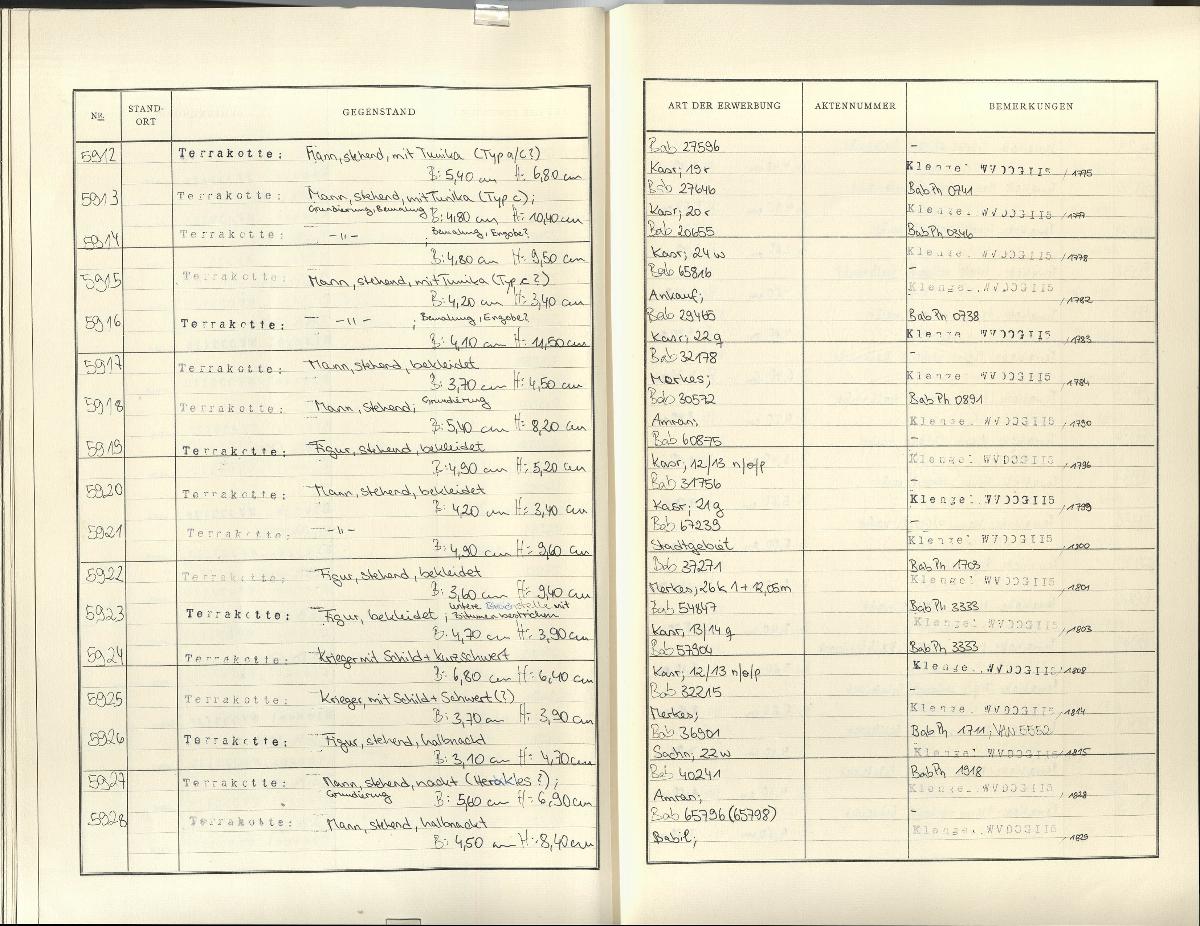 NR. STAND-ORT GEGENSTAND
5912 Terrakotte: Mann, stehend, mit Tunika (Typ a/c?)
B: 5,40 cm H: 6,80 cm
5913 Terrakotte: Mann, stehend, mit Tunika (Typ c);
Grundierung, Bemalung B: 4,80 cm H: 10,40 cm
5914 Terrakotte: -"- ; Bemalung, Engobe?
B: 4,80 cm H: 9,50 cm
5915 Terrakotte: Mann, stehend, mit Tunika (Typ c?)
B: 4,20 cm H: 3,40 cm
5916 Terrakotte: -"- ; Bemalung, Engobe?
B: 4,10 cm H: 11,50 cm
5917 Terrakotte: Mann, stehend, bekleidet
B: 3,70 cm H: 4,50 cm
5918 Terrakotte: Mann, stehend; Grundierung
B: 5,40 cm H: 8,20 cm
5919 Terrakotte: Figur, stehend, bekleidet
B: 4,90 cm H: 5,20 cm
5920 Terrakotte: Mann, stehend, bekleidet
B: 4,20 cm H: 3,40 cm
5921 Terrakotte: -"-
B: 4,90 cm H: 9,60 cm
5922 Terrakotte: Figur, stehend, bekleidet
B: 3,60 cm H: 9,40 cm
5923 Terrakotte: Figur, bekleidet; untere Bruchstelle mit
Bitumen bestrichen
B: 4,70 cm H: 3,90 cm
5924 Terrakotte: Krieger mit Schild + Kurzschwert
B: 6,80 cm H: 6,40 cm
5925 Terrakotte: Krieger mit Schild + Schwert (?)
B: 3,70 cm H: 3,90 cm
5926 Terrakotte: Figur, stehend, halbnackt
B: 3,10 cm H: 4,70 cm
5927 Terrakotte: Mann, stehend, nackt (Herakles?);
Grundierung B: 5,60 cm H: 6,90 cm
5928 Terrakotte: Mann, stehend, halbnackt
B: 4,50 cm H: 8,40 cm
ART DER ERWERBUNG AKTENNUMMER BEMERKUNGEN
Bab 27596 -
Kasr; 19 r Klengel WVDOG 115, 1775
Bab 27646 Bab Ph 0741
Kasr; 20 r Klengel WVDOG 115, 1777
Bab 20655 Bab Ph 0346
Kasr; 24 w Klengel WVDOG 115, 1778
Bab 65816 -
Ankauf; Klengel WVDOG 115, 1782
Bab 29465 Bab Ph 0738
Kasr; 22 g Klengel WVDOG 115, 1783
Bab 32178 -
Merkes; Klengel WVDOG 115, 1784
Bab 30572 Bab Ph 0891
Amran; Klengel WVDOG 115, 1790
Bab 60875 -
Kasr; 12/13 n/o/p Klengel WVDOG 115, 1796
Bab 31756 -
Kasr; 21 g Klengel WVDOG 115, 1799
Bab 67239 -
Stadtgebiet Klengel WVDOG 115, 1800
Bab 37271 Bab Ph 1703
Merkes; 26 k 1 + 12,05 m Klengel WVDOG 115, 1801
Bab 54847 Bab Ph 3333
Kasr; 13/14 g Klengel WVDOG 115, 1803
Bab 57904 Bab Ph 3333
Kasr; 12/13 n/o/p Klengel WVDOG 115, 1808
Bab 32215 -
Merkes; Klengel WVDOG 115, 1814
Bab 36901 Bab Ph 1711; VAN 5552
Sachn; 22 w Klengel WVDOG 115, 1815
Bab 40241 Bab Ph 1918
Amran; Klengel WVDOG 115, 1828
Bab 65796 (65798) -
Babil; Klengel WVDOG 115, 1829